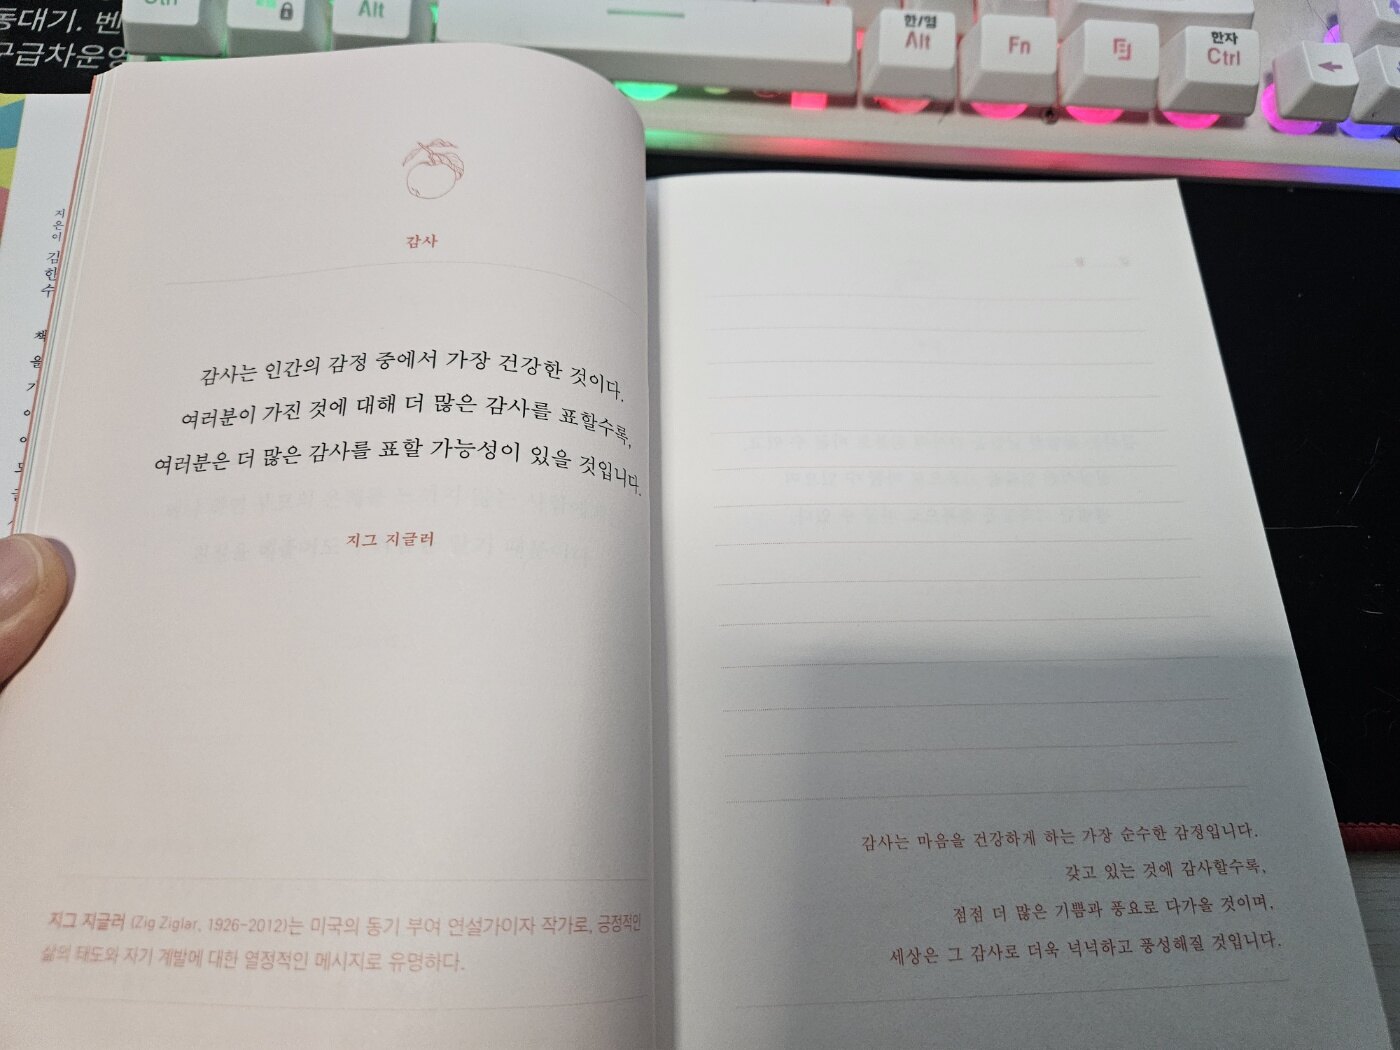 동대기. 벤
구급차운영
Ctrl
Alt
한/영
Alt
Fn
한자
Ctrl
지은이 김한수
책
을
감사
감사는 인간의 감정 중에서 가장 건강한 것이다.
여러분이 가진 것에 대해 더 많은 감사를 표할수록,
여러분은 더 많은 감사를 표할 가능성이 있을 것입니다.
지그 지글러
지그 지글러 (Zig Ziglar, 1926-2012)는 미국의 동기 부여 연설가이자 작가로, 긍정적인
삶의 태도와 자기 계발에 대한 열정적인 메시지로 유명하다.
감사는 마음을 건강하게 하는 가장 순수한 감정입니다.
갖고 있는 것에 감사할수록,
점점 더 많은 기쁨과 풍요로 다가올 것이며,
세상은 그 감사로 더욱 넉넉하고 풍성해질 것입니다.